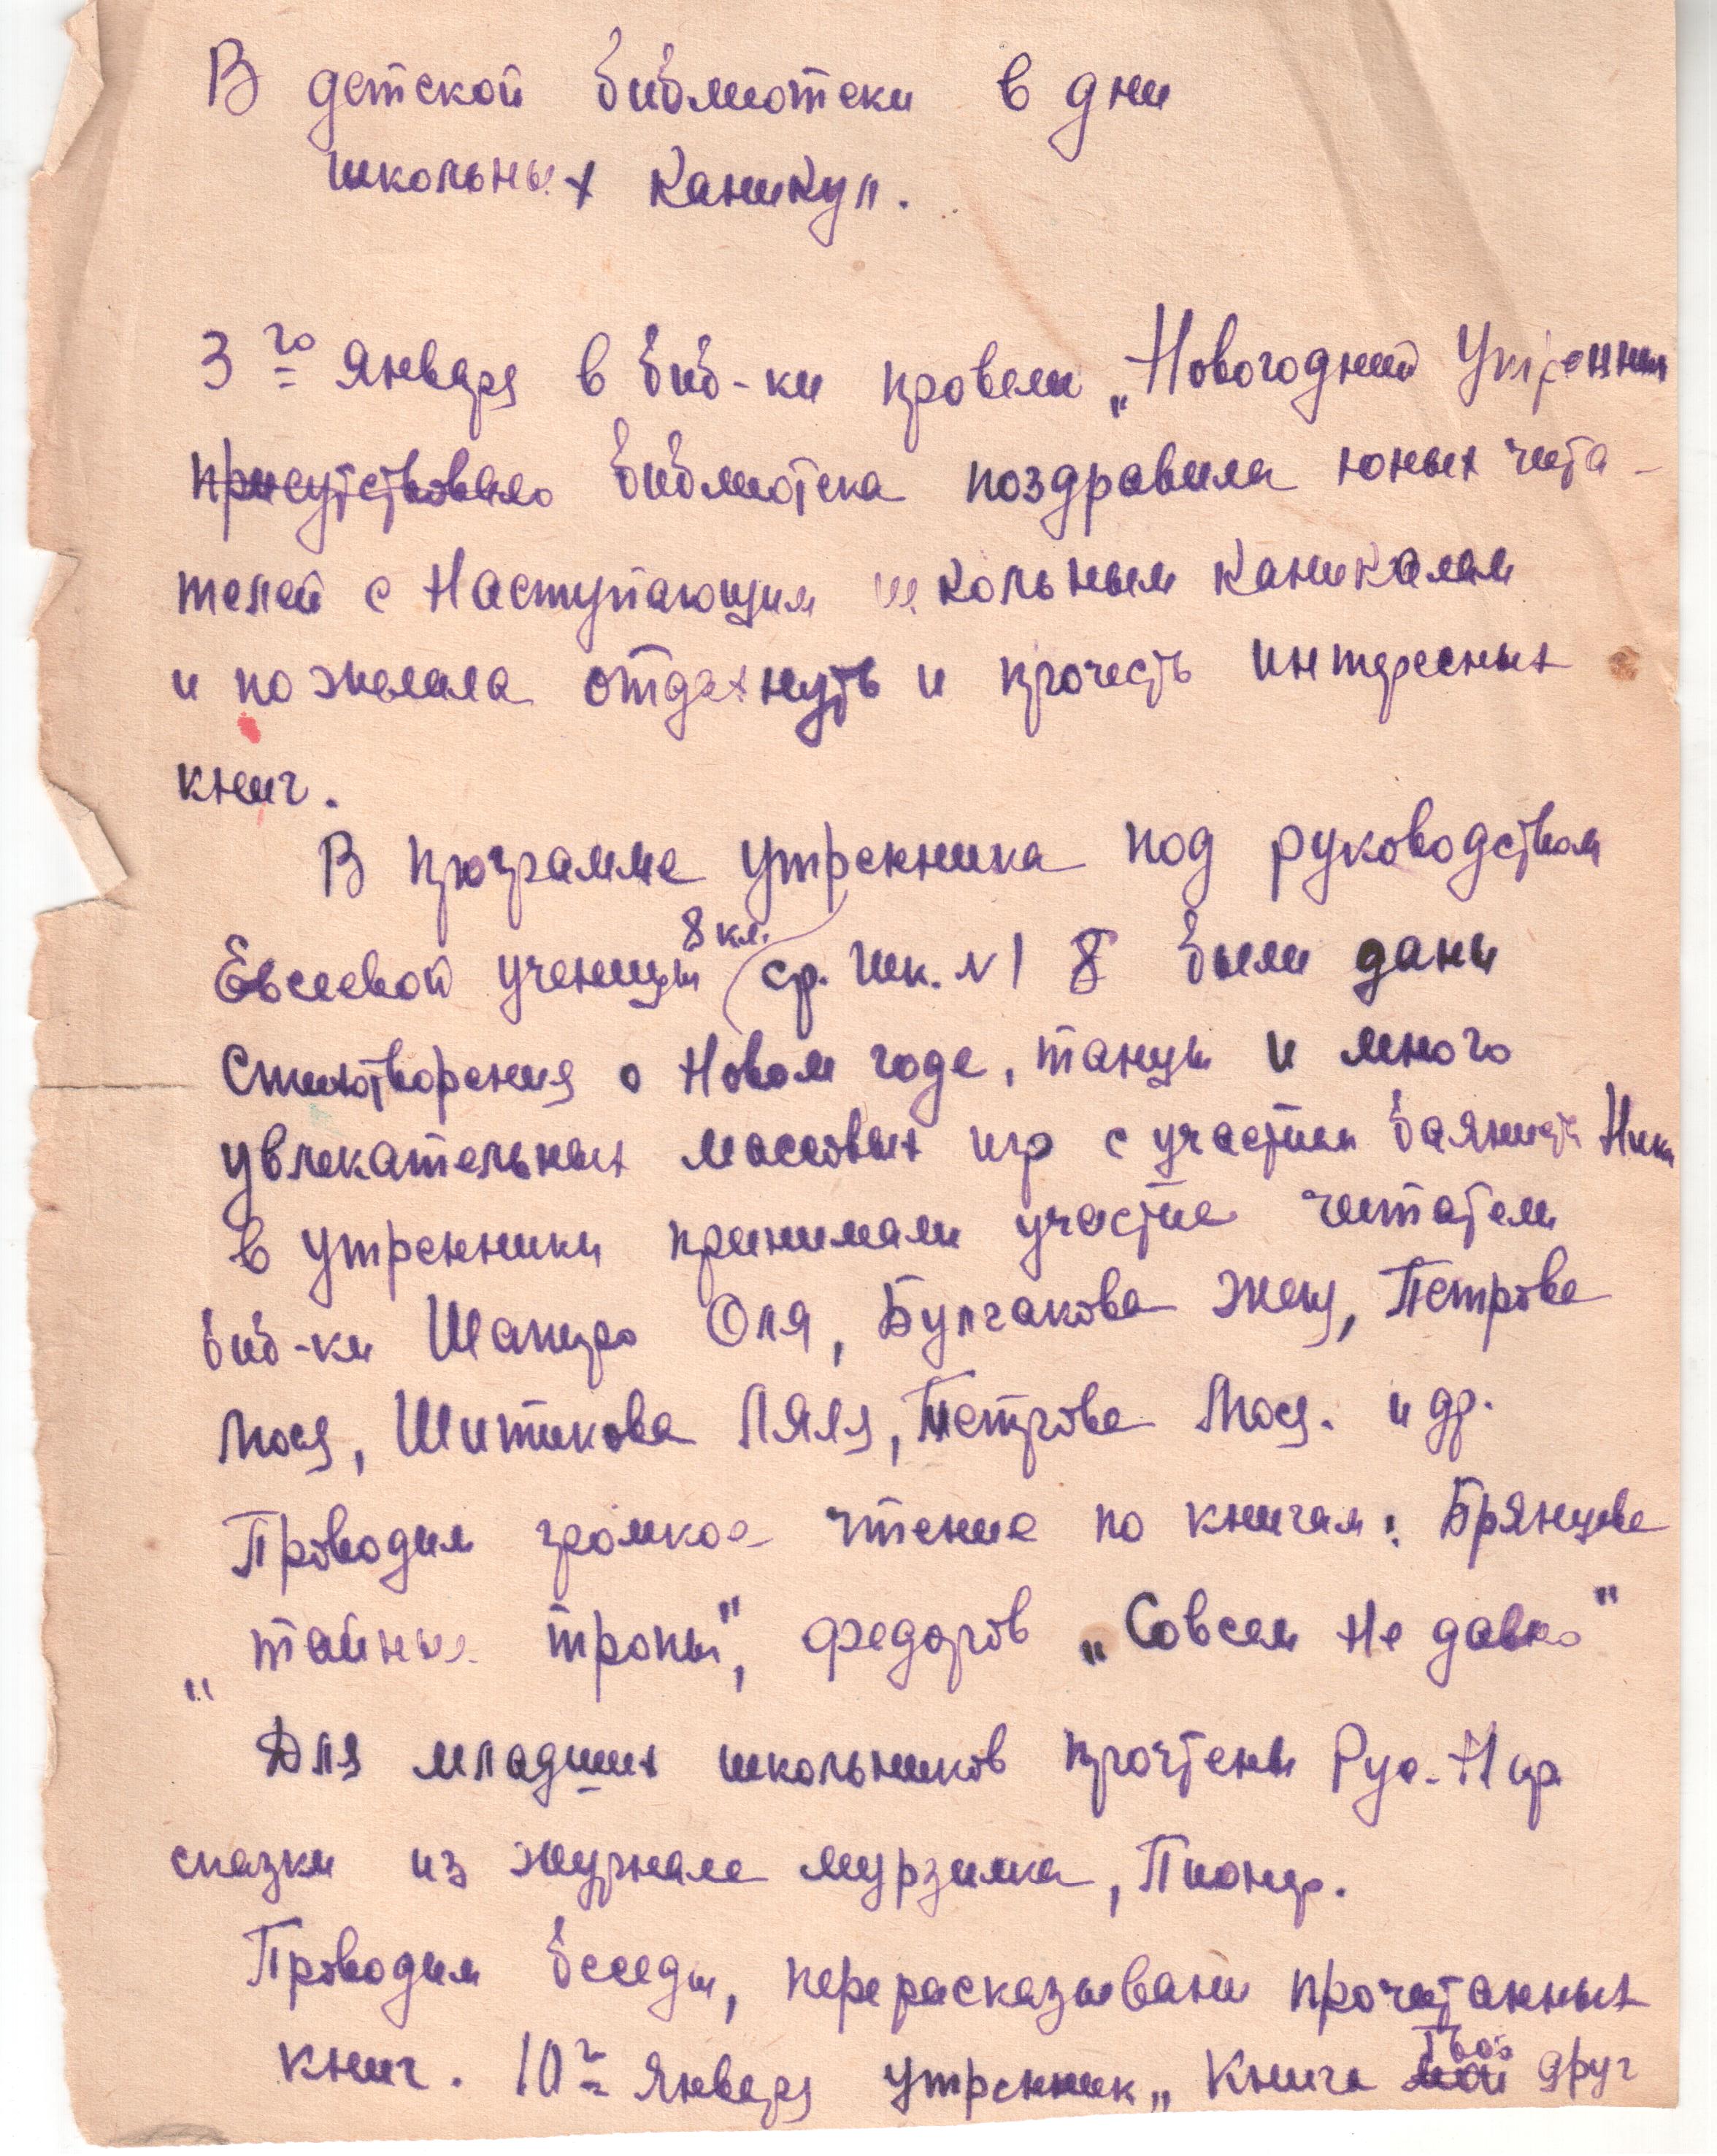 В детской библиотеки в дни
школьных каникул.
3го января в биб-ки провели „Новогодний Утренник
присутствовало библиотека поздравила юных чита-
телей с Наступающим школьным каникалам
и пожелала отдахнуть и прочесть интересных
книг.
В программе утренника под руководством
Евсеевой ученицы 8 кл. ср. шк. №1 8 были даны
Стихотворения о Новом годе, танцы и много
увлекательных массовых игр с участием баяниста
в утренники принимали участие читатели
биб-ки Шапиро Оля, Булгакова Женя, Петрова
Люся, Шитикова Ляля, Петрова Люся. и др.
Проводим громкое чтение по книгам: Брянцева
„тайные тропы", Федоров „Совсем не давно"
Для младших школьников прочтены Рус. Нар
сказки из журнала мурзилка, Пионер.
Проводим беседы, перерасказывани прочитанных
книг. 10го января утренник „Книга мой твой друг